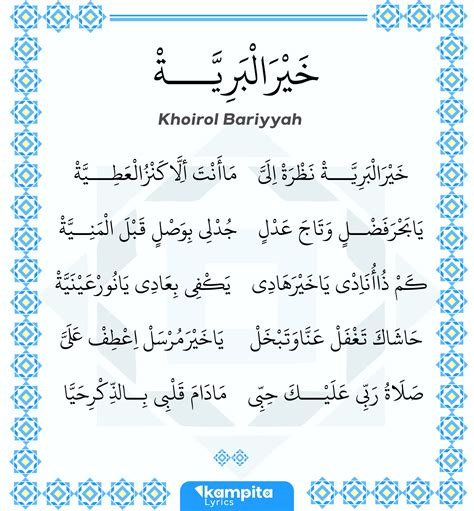 خَيْرَالْبَرِيَّـــــةْ
Khoirol Bariyyah
خَيْرَالْبَرِيَّـــــةْ نَظْرَةْ اِلَىَّ مَاأَنْتَ أِلَّا كَنْزُالْعَطِـــيَّةْ
يَابَحْرَفَضْـــلٍ وَتَاجَ عَدْلٍ جُدْلِى بِوَصْلٍ قَبْلَ الْمَنِـــيَّةْ
كَمْ ذَاأُنَادِىْ يَاخَيْرَهَادِى يَكْفِى بِعَادِى يَانُورْعَيْنِيَّةْ
حَاشَاكَ تَغْفَلْ عَنَّاوَتَبْخَلْ يَاخَيْرَمُرْسَلْ اِعْطِفْ عَلَىَّ
صَلَاةُ رَبِّى عَلَيْـــكَ حِبِّى مَادَامَ قَلْبِى بِـــالذِّكْرِحَيَّا
kampita
Lyrics